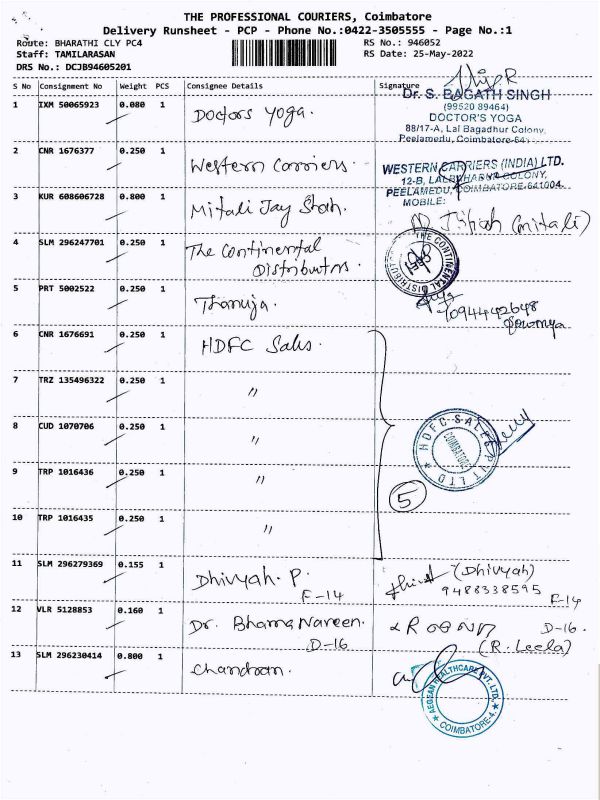 THE PROFESSIONAL COURIERS, Coimbatore
Delivery Runsheet - PCP - Phone No.:0422-3505555 - Page No.:1
Route: BHARATHI CLY PC4
RS No.: 946052
Staff: TAMILARASAN
RS Date: 25-May-2022
DRS No.: DCJB94605201
S No Consignment No Weight PCS Consignee Details Signature
1 IXM 50065923 0.080 1 Doctors Yoga.
Dr. S. BAGATH SINGH
(99520 89464)
DOCTOR'S YOGA
88/17-A, Lal Bagadhur Colony,
Peelamedu, Coimbatore-641
2 CNR 1676377 0.250 1 Western Carriers.
WESTERN CARRIERS (INDIA) LTD.
12-B, LALBHADUR COLONY,
PEELAMEDU, COIMBATORE-641004.
MOBILE:
3 KUR 608606728 0.800 1 Mitali Jay Shah.
(mitali)
4 SLM 296247701 0.250 1 The Continental
Distributors.
THE CONTINENTAL DISTRIBUTORS
5 PRT 5002522 0.250 1 Thanuja.
7094442648
Sowmya
6 CNR 1676691 0.250 1 HDFC Sales.
7 TRZ 135496322 0.250 1 "
8 CUD 1070706 0.250 1 "
HDFC SALES PVT LTD
COIMBATORE
9 TRP 1016436 0.250 1 "
5
10 TRP 1016435 0.250 1 "
11 SLM 296279369 0.155 1 Dhivyah. P.
F-14
(Dhivyah)
9488338595
F-14
12 VLR 5128853 0.160 1 Dr. Bhama Naveen.
D-16
D-16.
(R. Leela)
13 SLM 296230414 0.800 1 Chandran.
AEGEAN HEALTHCARE PVT. LTD.
COIMBATORE-4.